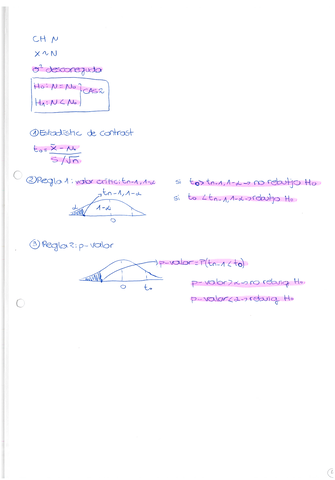 CH N
X~N
σ² desconeguda
H₀: N = N₀
H₁: N < N₀
CAS 2
① Estadístic de contrast
t₀ = x̄ - N₀ / S/√n
② Regla 1: valor crític: tn-1, 1-α
si t₀ > tn-1, 1-α → no rebutjo H₀
si t₀ < tn-1, 1-α → rebutjo H₀
tn-1, 1-α
α 1-α
0
③ Regla 2: p-valor
p-valor = P(tn-1 < t₀)
0 t₀
p-valor > α → no rebutj H₀
p-valor < α → rebutj H₀